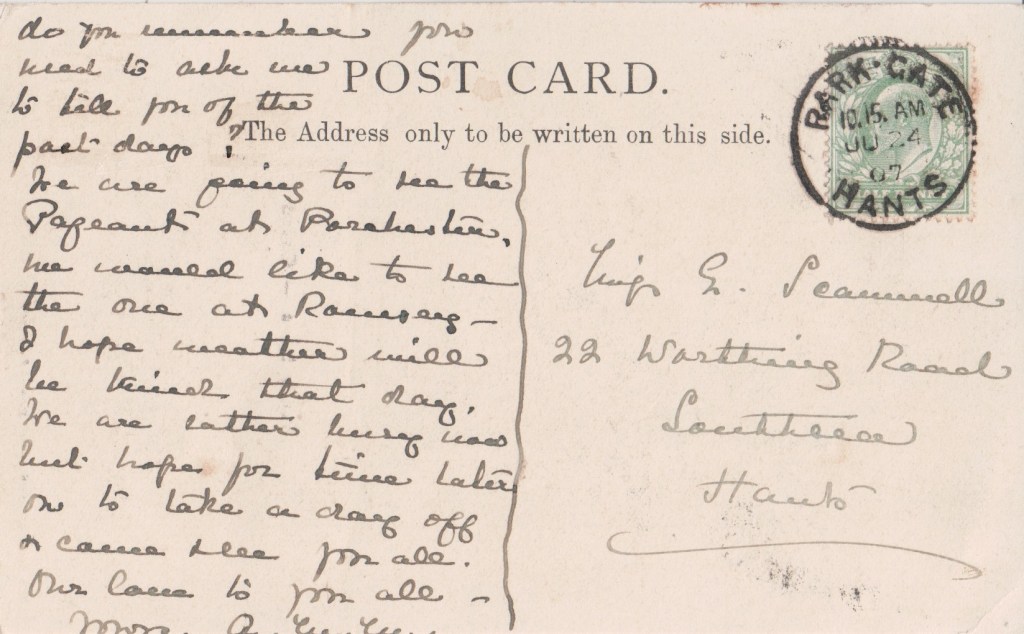 do you remember you
used to ask me
to tell you of the
past days?
We are going to see the
Pageant at Porchester,
we would like to see
the one at Romsey –
I hope weather will
be kind that day.
We are rather busy now
but hope for time later
on to take a day off
& come see you all.
Our love to you all –
Yours
POST CARD.
The Address only to be written on this side.
PARK·GATE
10.15. AM
JU 24
07
HANTS
Miss G. Scammell
22 Worthing Road
Southsea
Hants